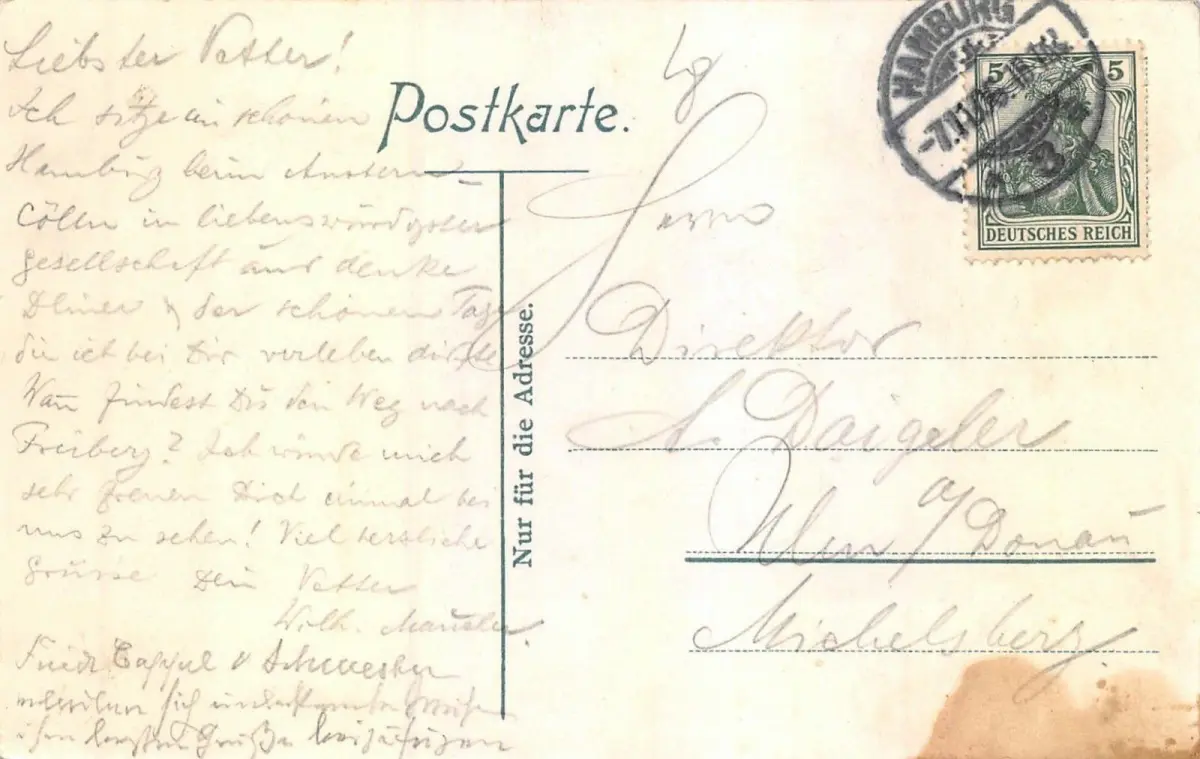 Liebster Vetter!
Ich sitze in schönen
Hamburg beim Austern
Cölln in liebenswürdigster
Gesellschaft und denke
Deiner & der schönen Tage
die ich bei Dir verleben durfte
Wann findest Du den Weg nach
Freiberg? Ich würde mich
sehr freuen Dich einmal bei
uns zu sehen! Viel herzliche
Grüsse Dein Vetter
Wilh.
Schwester
sich unbekannter Weise
Grüße beizufügen
Postkarte.
Nur für die Adresse.
HAMBURG
-7.11.
5 5
DEUTSCHES REICH
Herrn
Direktor
A. Daigeler
Ulm a/Donau
Michelsberg.